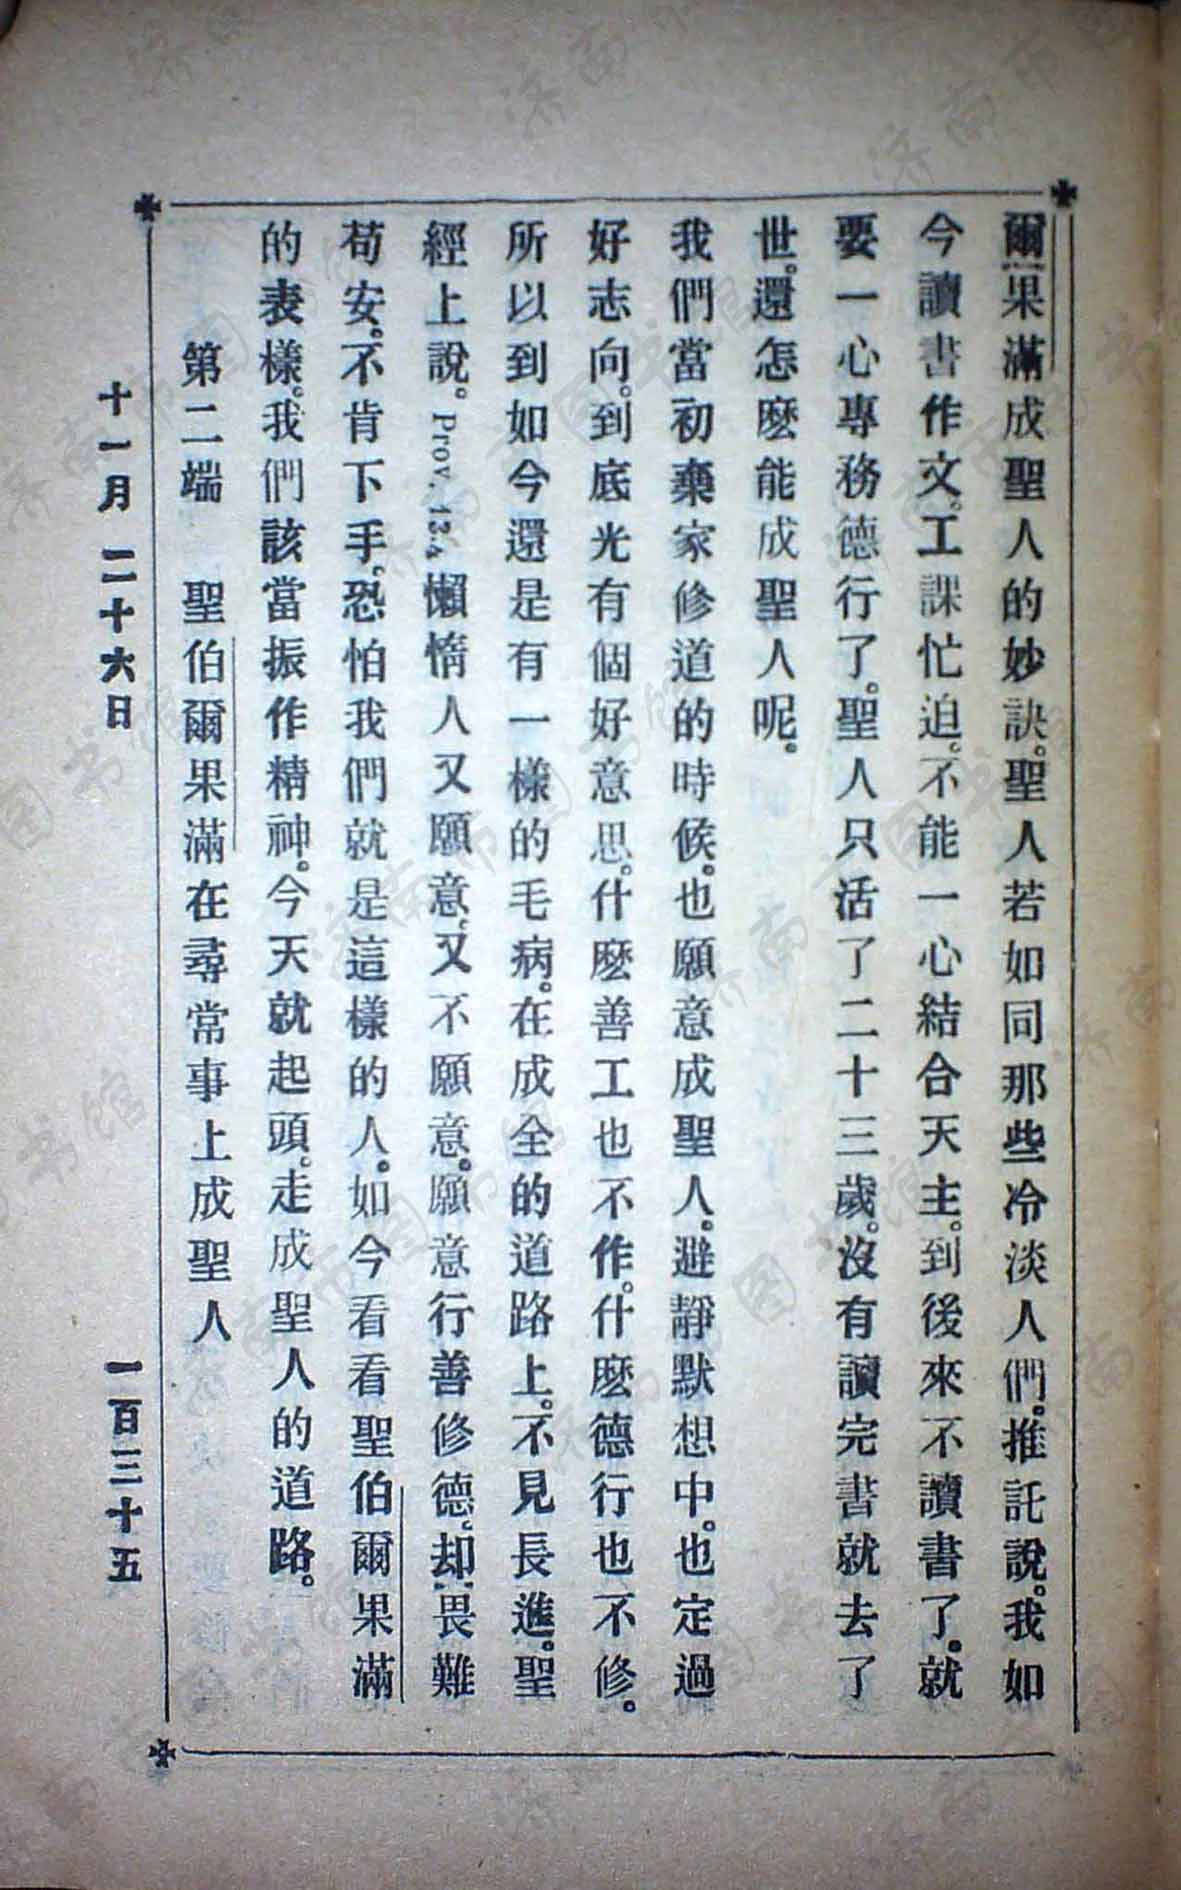 爾果滿成聖人的妙訣。聖人若如同那些冷淡人們。推託說。我如
今讀書作文。工課忙迫。不能一心結合天主。到後來不讀書了。就
要一心專務德行了。聖人只活了二十三歲。沒有讀完書就去了
世。還怎麽能成聖人呢。
我們當初棄家修道的時候。也願意成聖人。避靜默想中。也定過
好志向。到底光有個好意思。什麽善工也不作。什麽德行也不修。
所以到如今還是有一樣的毛病。在成全的道路上。不見長進。聖
經上說。Prov. 13.4懶惰人又願意、又不願意。願意行善修德、却畏難
苟安。不肯下手。恐怕我們就是這樣的人。如今看看聖伯爾果滿
的表樣。我們該當振作精神。今天就起頭。走成聖人的道路。
第二端 聖伯爾果滿在尋常事上成聖人
十一月 二十六日 一百三十五
济南市图书馆